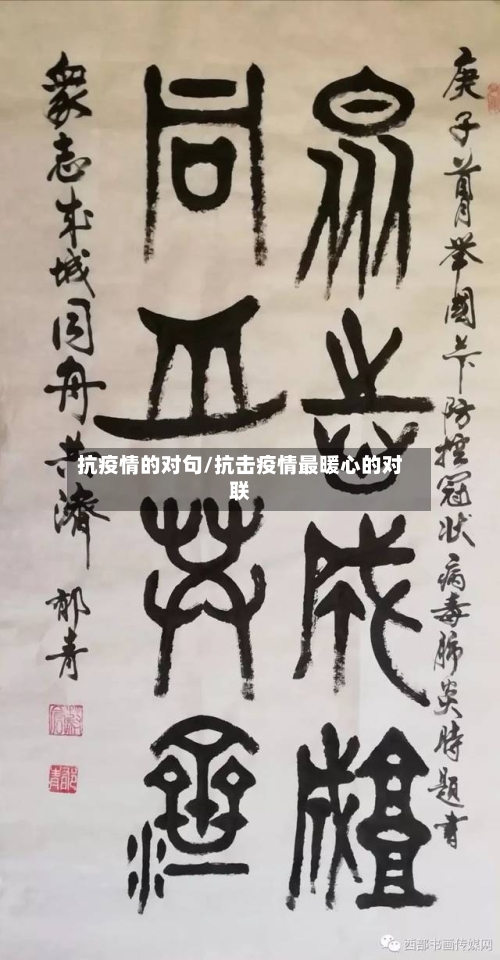 庚子首月舉國上下防控冠状病毒肺炎時題書
眾志成城
同舟共濟
眾志成城同舟共濟 青
抗疫情的对句/抗击疫情最暖心的对
联
西部书画传媒网